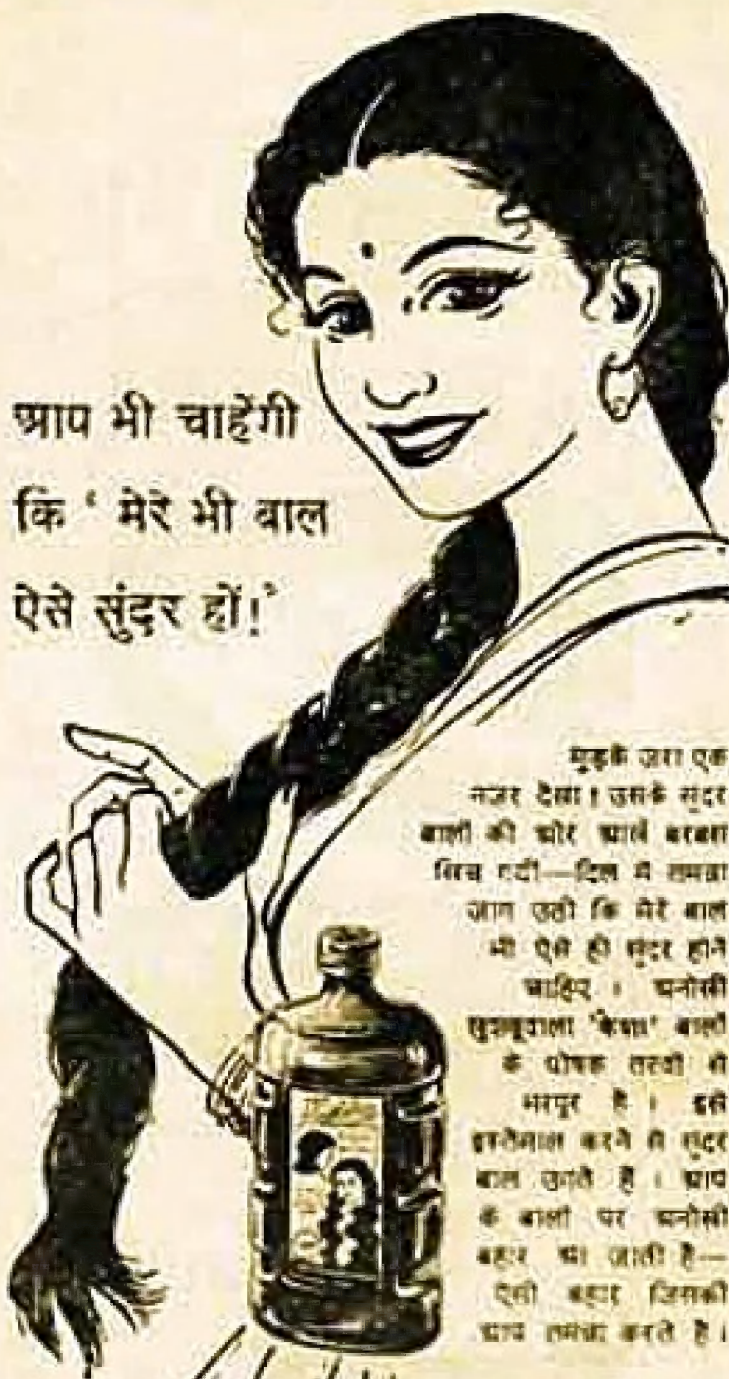 आप भी चाहेंगी
कि ' मेरे भी बाल
ऐसे सुंदर हों!'
मुड़के ज़रा एक
नज़र देखा ! उसके सुंदर
बालों की ओर आखें बरबस
खिच गयीं—दिल में तमन्ना
जाग उठी कि मेरे बाल
भी ऐसे ही सुंदर होने
चाहिए । अनोखी
खुशबूवाला बालों
के पोषक तत्वों से
भरपूर है । इसे
इस्तेमाल करने से सुंदर
बाल उगते हैं । आप
के बालों पर अनोखी
बहार आ जाती है—
ऐसी बहार जिसकी
आप तमन्ना करते है ।